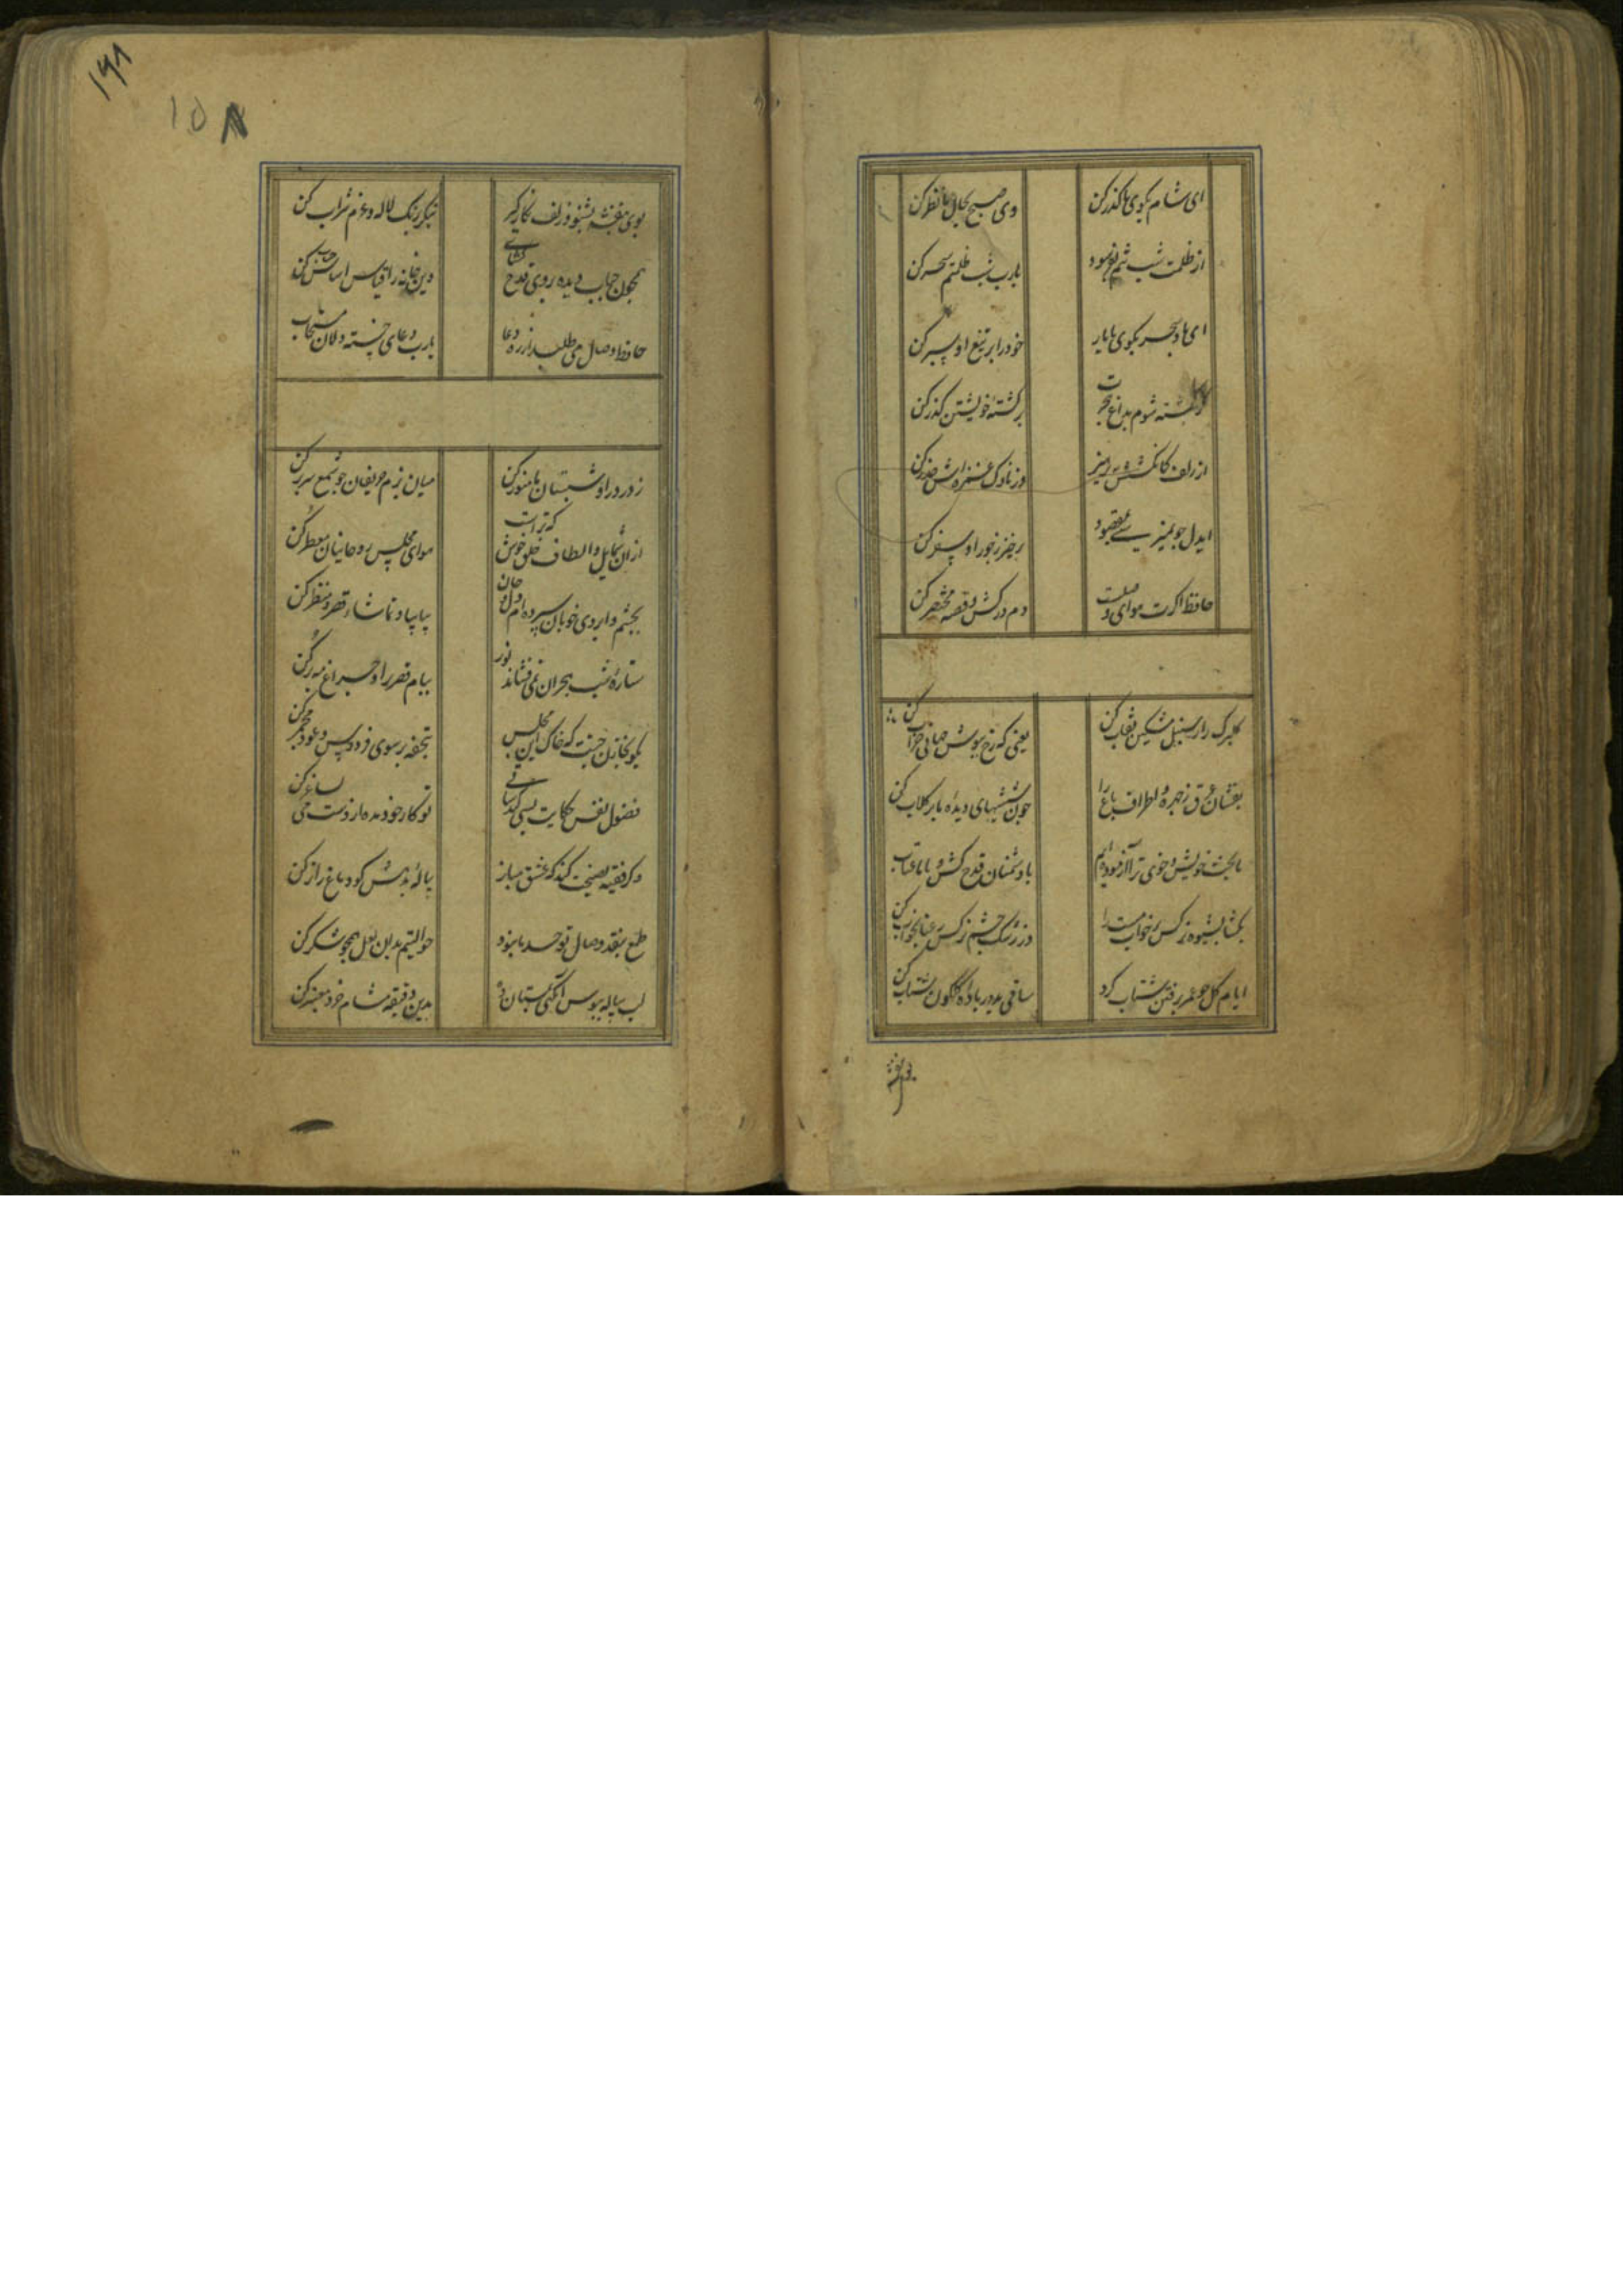 ای شام بکوی ما گذر کن
وی صبح بحال ما نظر کن
از ظلمت شب
یا رب شب ظلمتم سحر کن
ای باد سحر بکوی ما یار
خود را بر تیغ او سپر کن
کشته شوم بداغ هجرت
بر کشته خویشتن گذر کن
از زلف
وز ناوک غمزه اش حذر کن
ایدل چو نمیرسی بمقصود
برخیز ز جور او سفر کن
حافظ اگرت هوای وصلست
دم درکش و قصه مختصر کن
گلبرگ را ز سنبل مشکین نقاب کن
یعنی که رخ بپوش جهانی خراب کن
بفشان عرق ز چهره و اطراف باغ را
چون شیشهای دیده ما پر گلاب کن
ما بخت خویش و خوی ترا آزموده ایم
با دشمنان قدح کش و با ما عتاب
بگشا بشیوه نرگس پر خواب مست را
وز رشک چشم نرگس رعنا بخواب کن
ایام گل چو عمر برفتن شتاب کرد
ساقی بدور باده گلگون شتاب کن
بوی بنفشه بشنو و زلف نگار گیر
بنگر برنگ لاله و عزم شراب کن
همچون حباب دیده بروی قدح گشای
وین خانه را قیاس اساس از حباب کن
حافظ وصال می طلبد از ره دعا
یارب دعای خسته دلان مستجاب
ز در درا و شبستان ما منور کن
میان بزم حریفان چو شمع سر بر کن
از ان شمایل و الطاف خلق خوش که تراست
هوای مجلس روحانیان معطر کن
بچشم و ابروی خوبان سپرده ام دل و جان
بیا بیا و تماشاء قصر و منظر کن
ستارهٔ شب هجران نمی فشاند نور
ببام قصر برا و چراغ مه بر کن
بگو بخازن جنت که خاک این مجلس
بتحفه بر سوی فردوس و عود مجمر کن
فضول نفس حکایت بسی کند ساقی
تو کار خود مده از دست می بساغر کن
وگر فقیه نصیحت کند که عشق مباز
پیالهٔ بدهش گو دماغ را تر کن
طمع بنقد وصال تو حد ما نبود
حوالتیم بدان لعل همچو شکر کن
لب پیاله ببوس آنگهی بمستان ده
بدین دقیقه مشام خرد معنبر کن